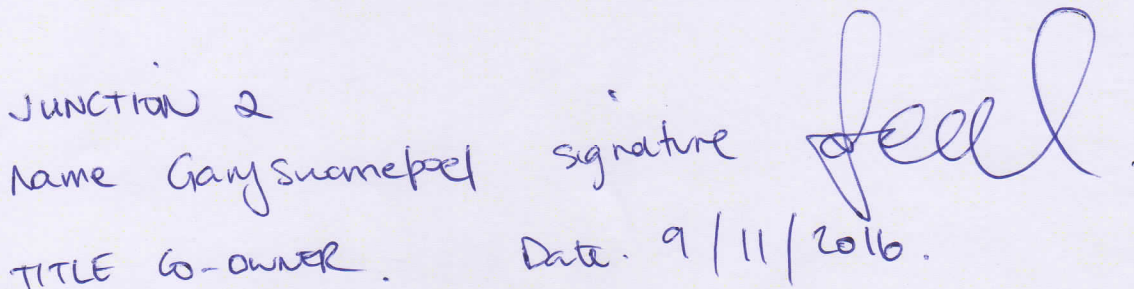 JUNCTION 2
Name Gary signature
TITLE CO-OWNER. Date. 9/11/2016.